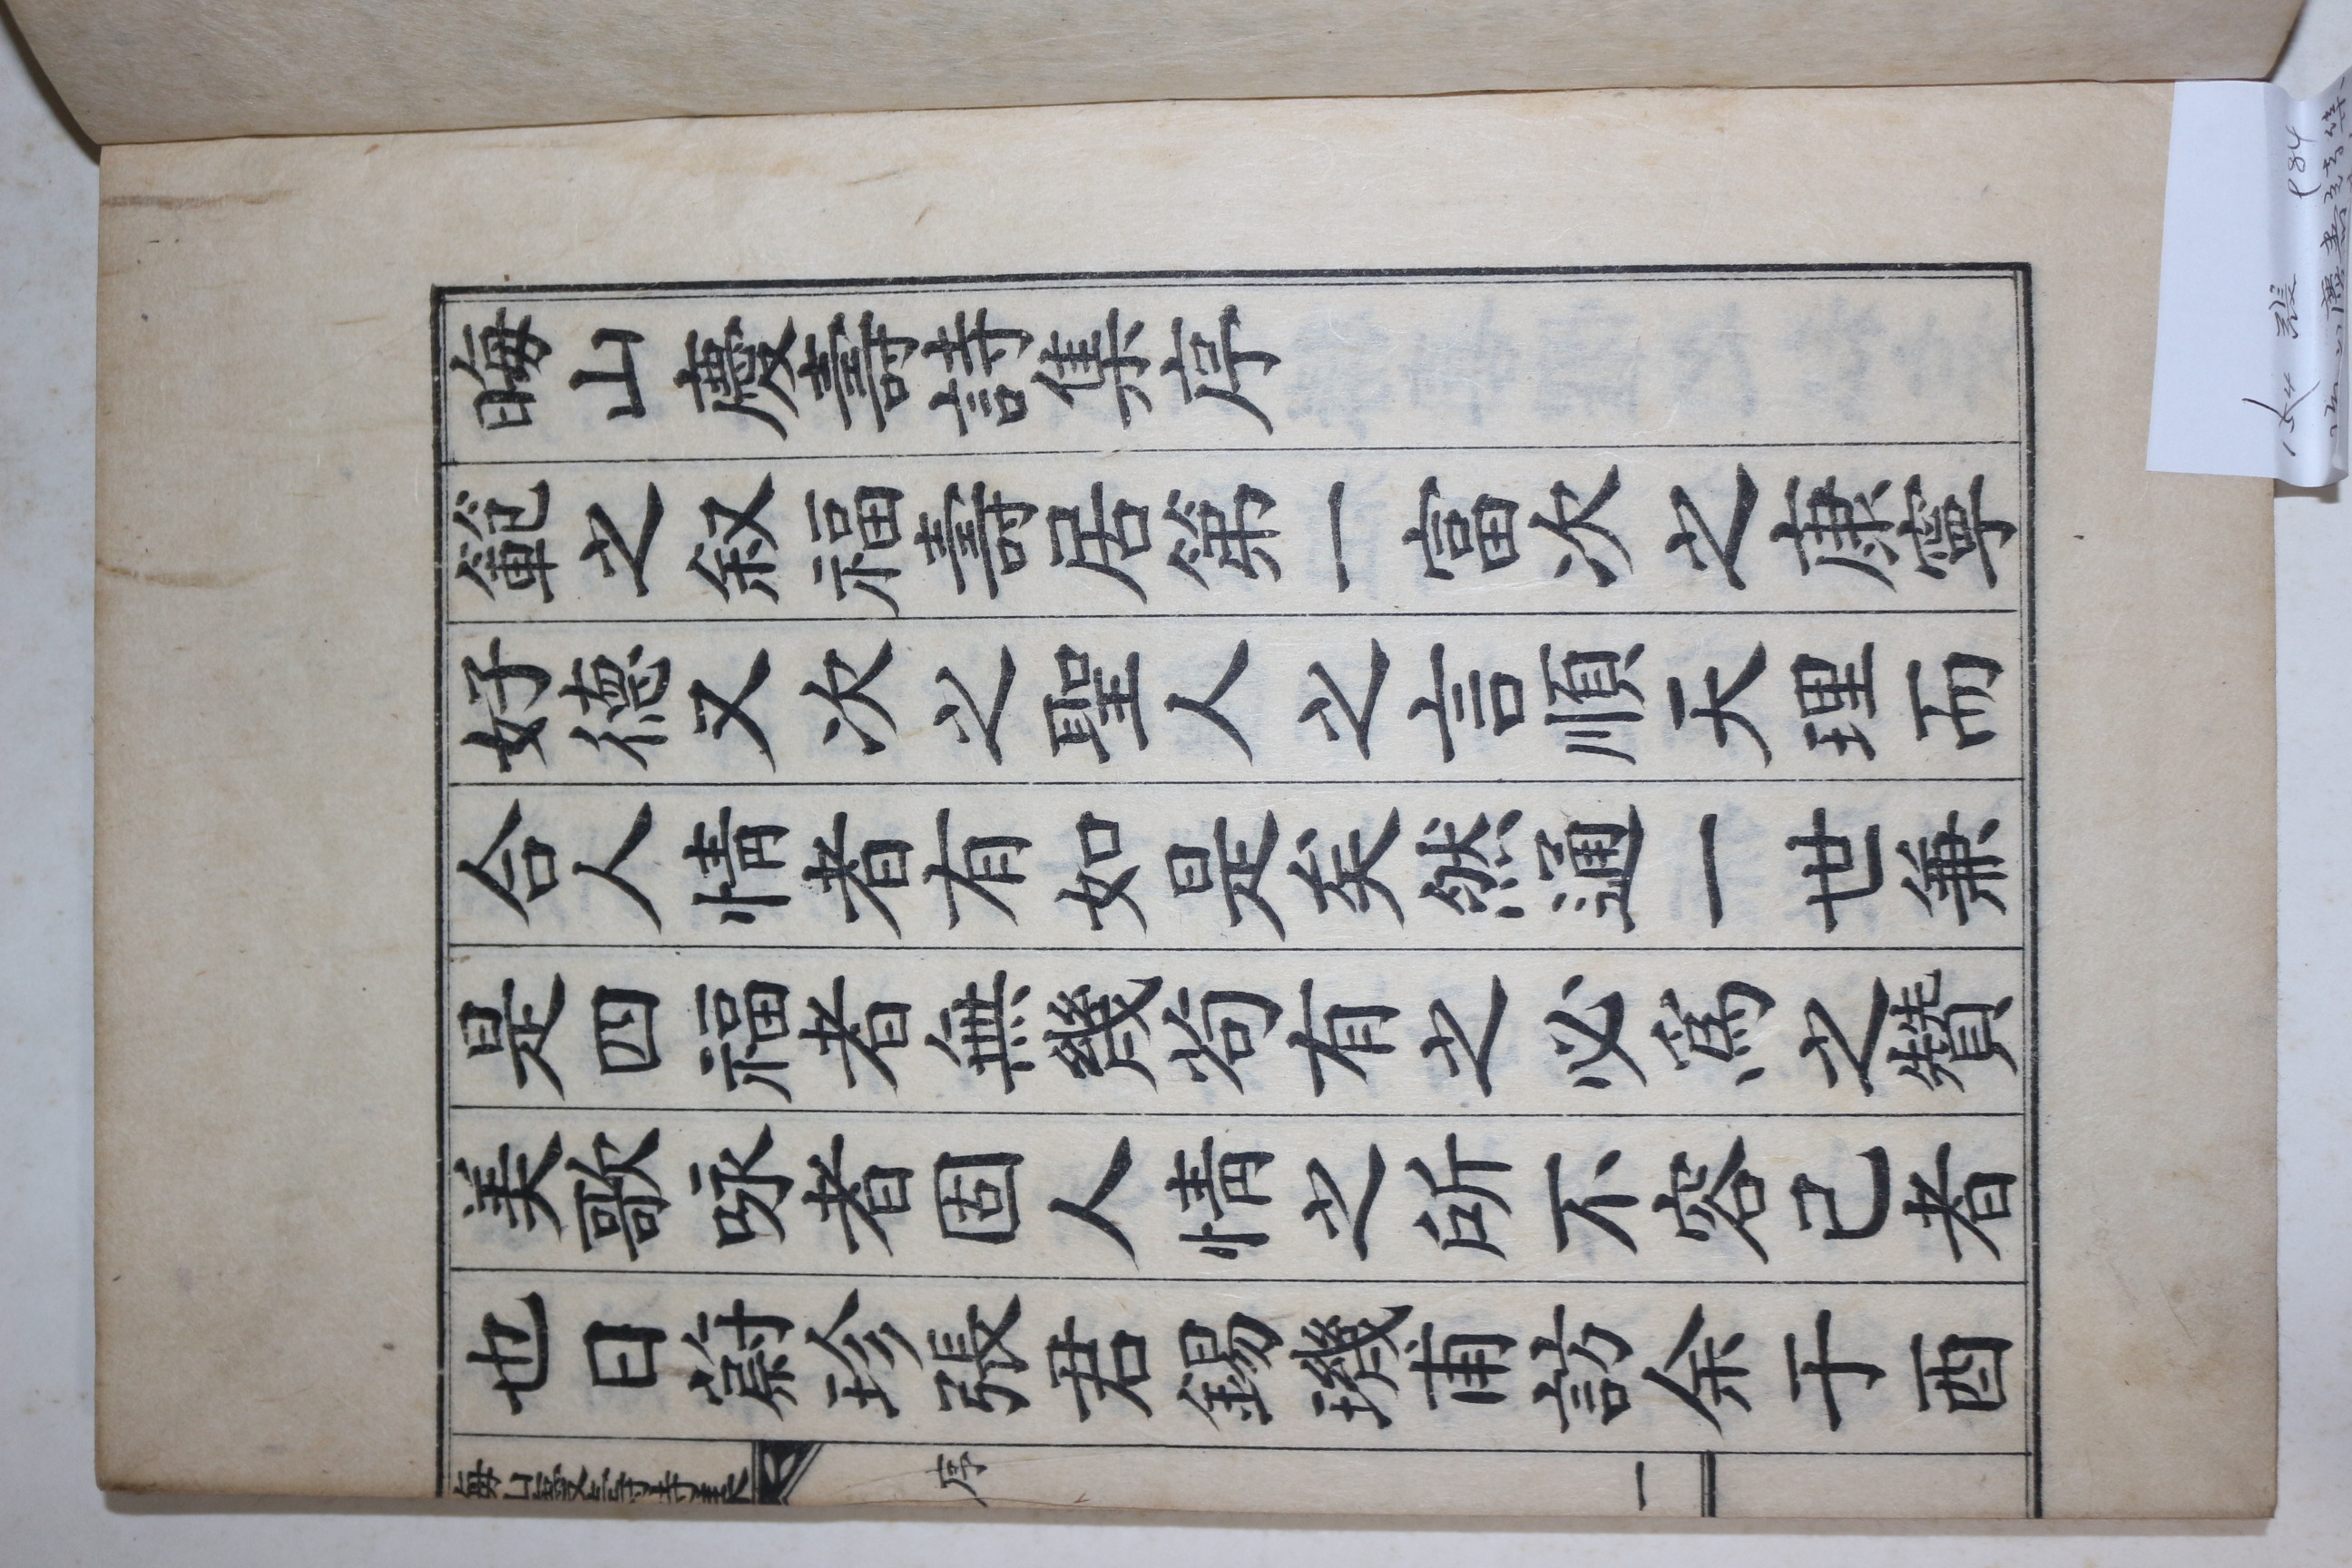 晦山慶壽詩集序
範之叙福壽居第一富次之康寧
好德又次之聖人之言順天理而
合人情者有如是矣然通一世兼
是四福者無幾苟有之必爲之贊
美歌咏者固人情之所不容已者
也日蔚珍張君錫璣甫訪余于酉
序
一
張